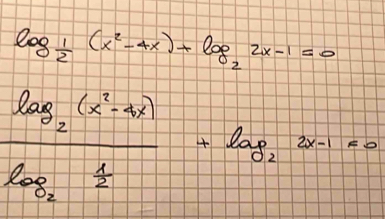 log 1/2 (x² - 4x) + log₂ 2x - 1 = 0
log₂ (x² - 4x) / log₂ 1/2 + log₂ 2x - 1 = 0